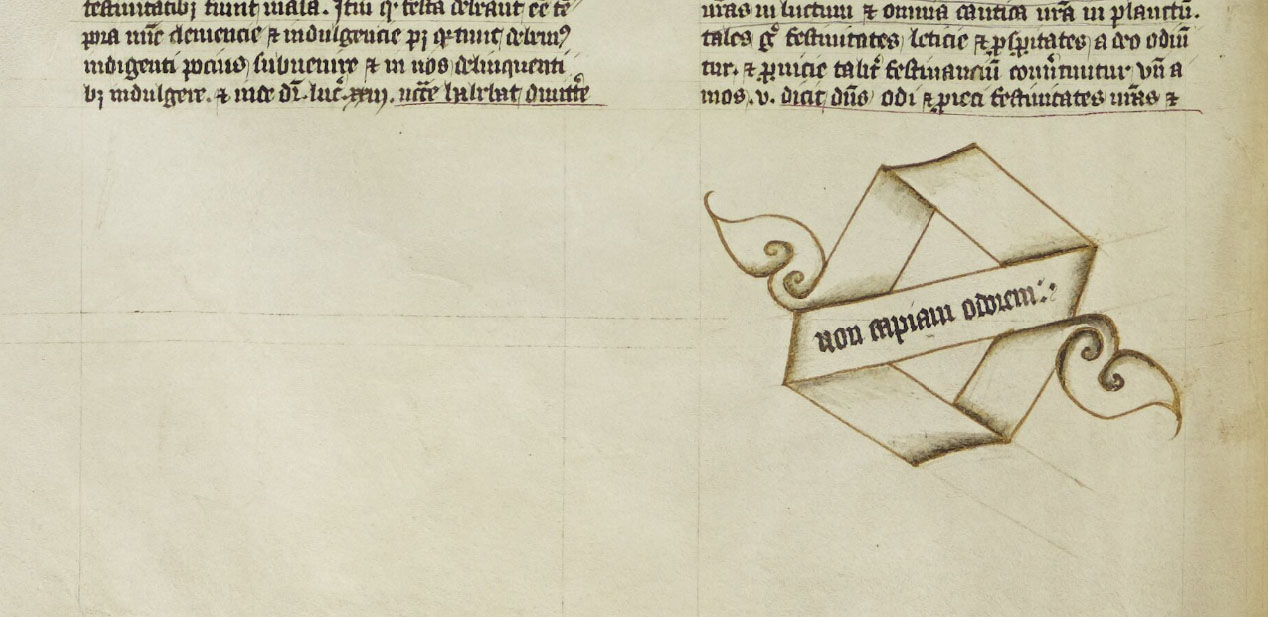 festiuitatibȝ fiunt mala. Itē qꝛ festa debeant eē tē
pora mīe clemencie ⁊ indulgencie pȝ qꝛ tunc debemꝰ
indigenti pocius subuenire ⁊ in nos delinquenti
bȝ indulgere. ⁊ inde dr̄. luc̄. xxiij. necce habebat dimitte͛
v̄ras in luctum ⁊ omnia cantica v̄ra in planctū.
tales gͦ festiuitates leticie ⁊ ꝓsꝑitates a deo odiū
tur. ⁊ talit͛ festinanciū vn̄ a
mos. v. dicit dn̄s odi ⁊ ꝓieci festiuitates v̄ras ⁊
non capiam odorem